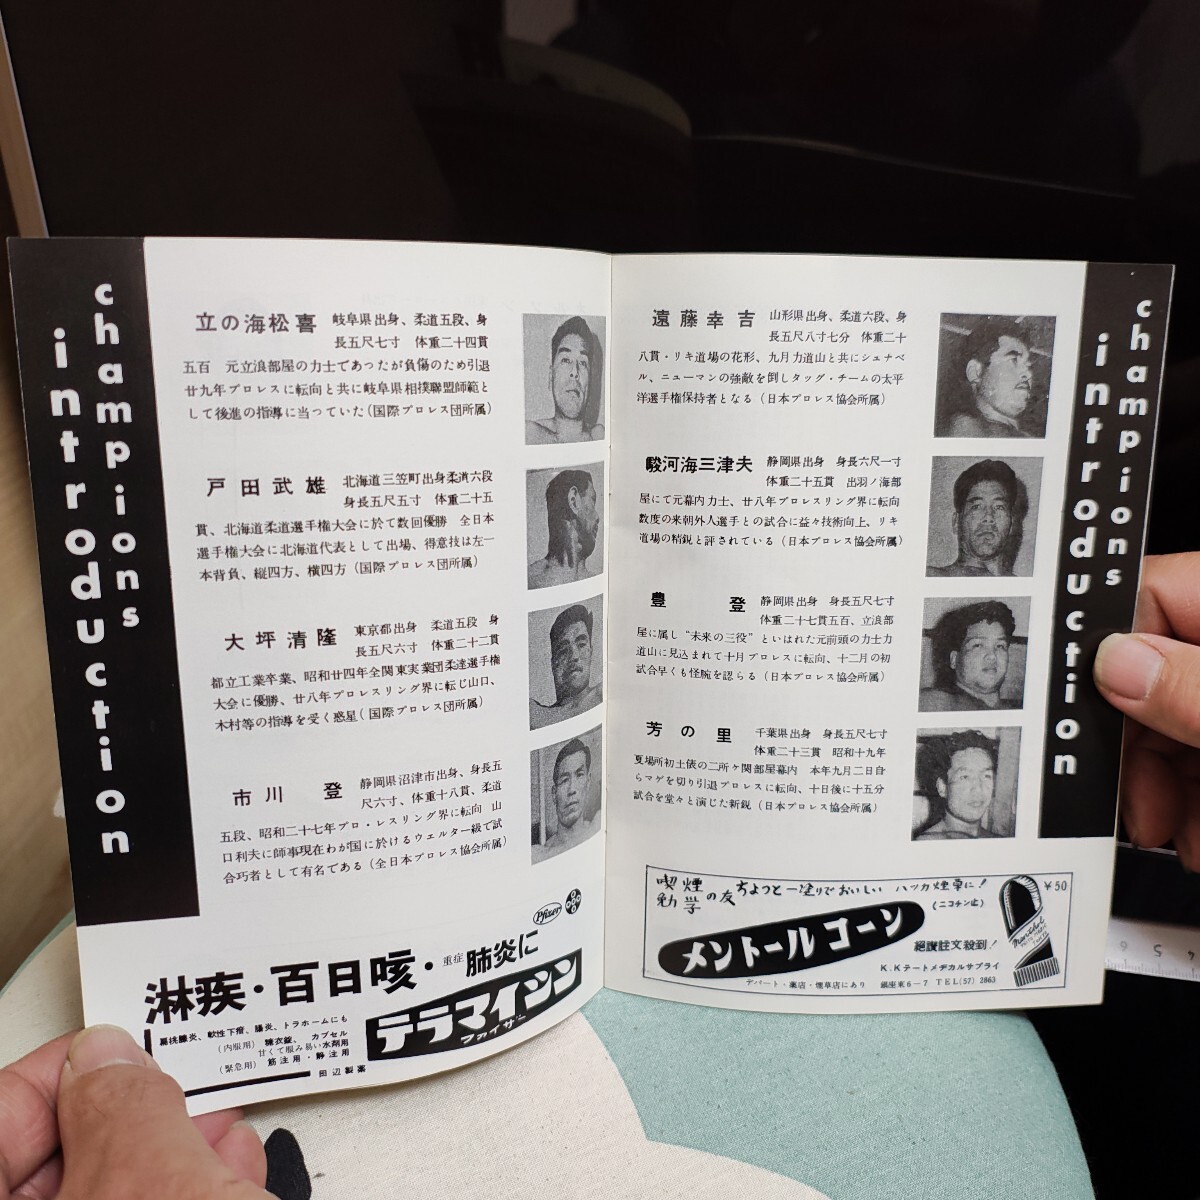 champions
introduction
立の海松喜
岐阜県出身、柔道五段、身
長五尺七寸　体重二十四貫
五百　元立浪部屋の力士であったが負傷のため引退
廿九年プロレスに転向と共に岐阜県相撲聯盟師範と
して後進の指導に当っていた（国際プロレス団所属）
戸田武雄
北海道三笠町出身柔道六段
身長五尺五寸　体重二十五
貫、北海道柔道選手権大会に於て数回優勝　全日本
選手権大会に北海道代表として出場、得意技は左一
本背負、縦四方、横四方（国際プロレス団所属）
大坪清隆
東京都出身　柔道五段　身
長五尺六寸　体重二十二貫
都立工業卒業、昭和廿四年全関東実業団柔道選手権
大会に優勝、廿八年プロレスリング界に転じ山口、
木村等の指導を受く惑星（国際プロレス団所属）
市川　登
静岡県沼津市出身、身長五
尺六寸、体重十八貫、柔道
五段、昭和二十七年プロ・レスリング界に転向　山
口利夫に師事現在わが国に於けるウェルター級で試
合巧者として有名である（全日本プロレス協会所属）
Pfizer
淋疾・百日咳・重症肺炎に
テラマイシン
ファイザー
扁桃腺炎、軟性下疳、腸炎、トラホームにも
（内服用）糖衣錠、カプセル
甘くて服み易い水剤用
（緊急用）筋注用・静注用
田辺製薬
遠藤幸吉
山形県出身、柔道六段、身
長五尺八寸七分　体重二十
八貫・リキ道場の花形、九月力道山と共にシュナベ
ル、ニューマンの強敵を倒しタッグ・チームの太平
洋選手権保持者となる（日本プロレス協会所属）
駿河海三津夫
静岡県出身　身長六尺一寸
体重二十五貫　出羽ノ海部
屋にて元幕内力士、廿八年プロレスリング界に転向
数度の来朝外人選手との試合に益々技術向上、リキ
道場の精鋭と評されている（日本プロレス協会所属）
豊　登
静岡県出身　身長五尺七寸
体重二十七貫五百、立浪部
屋に属し“未来の三役”といはれた元前頭の力士力
道山に見込まれて十月プロレスに転向、十二月の初
試合早くも怪腕を認らる（日本プロレス協会所属）
芳の里
千葉県出身　身長五尺七寸
体重二十三貫　昭和十九年
夏場所初土俵の二所ヶ関部屋幕内　本年九月二日自
らマゲを切り引退プロレスに転向、十日後に十五分
試合を堂々と演じた新鋭（日本プロレス協会所属）
喫煙
勉学の友
ちよつと一塗りでおいしい ハッカ煙草に！
（ニコチン止）
¥50
メントールコーン
Menthol
絶讃註文殺到！
K.Kテートメヂカルサプライ
デパート・薬店・煙草店にあり　銀座東6－7　TEL(57) 2863
champions
introduction
4 5 6